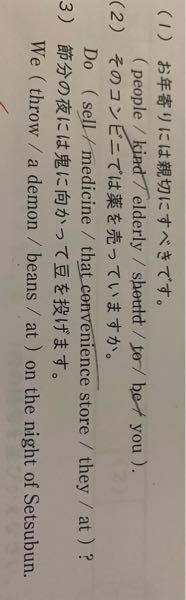 (1) お年寄りには親切にすべきです。
( people / kind / elderly / should / to / be / you ).
(2) そのコンビニでは薬を売っていますか。
Do ( sell / medicine / that convenience store / they / at ) ?
3) 節分の夜には鬼に向かって豆を投げます。
We ( throw / a demon / beans / at ) on the night of Setsubun.